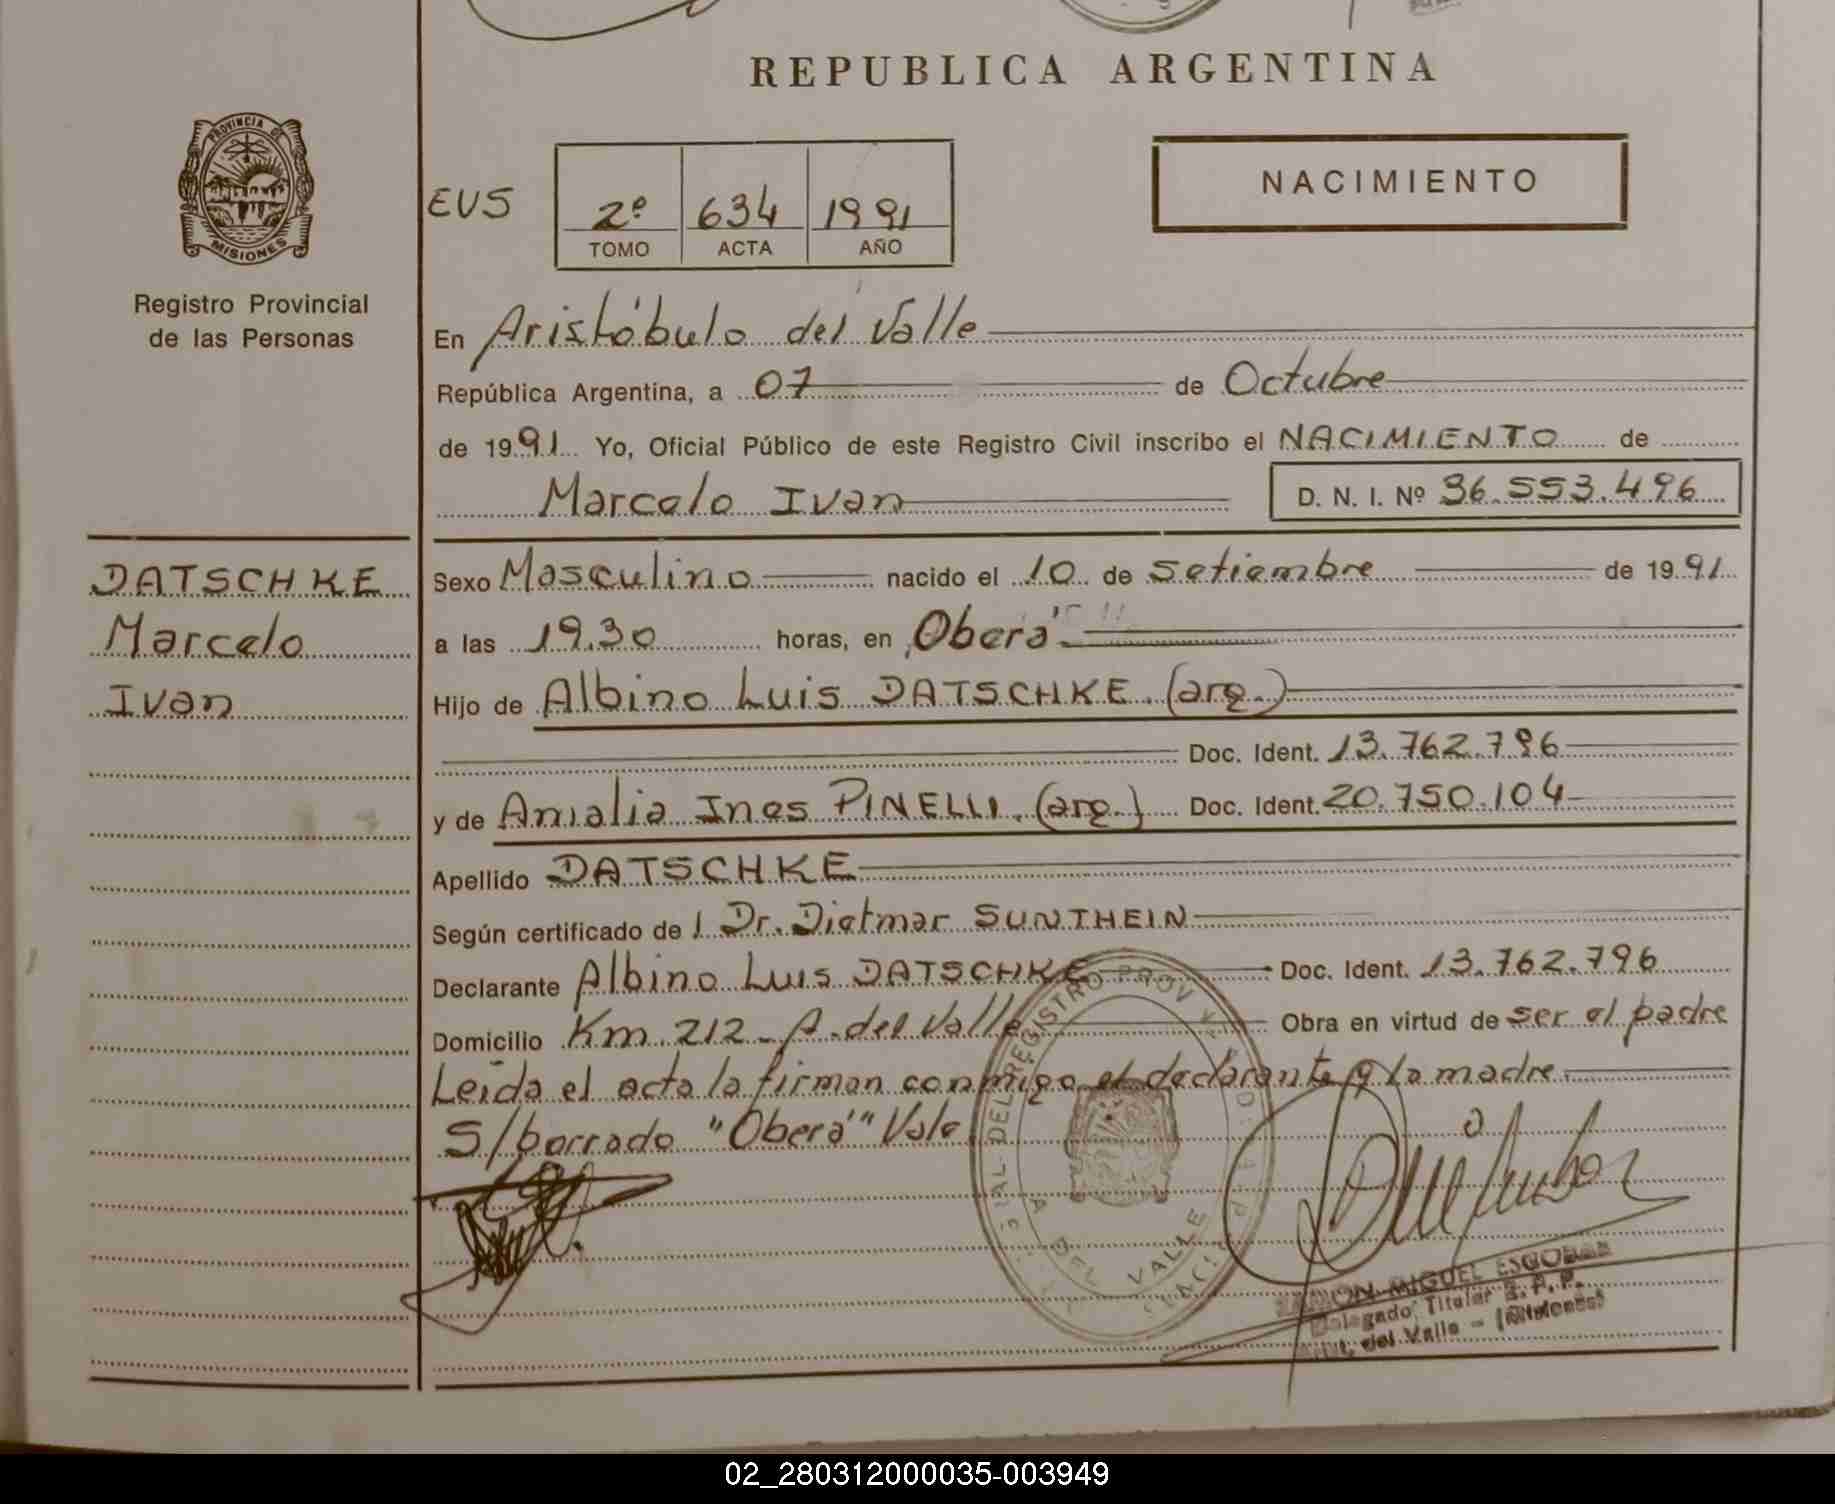 REPUBLICA ARGENTINA
PROVINCIA DE
MISIONES
Registro Provincial
de las Personas
EUS
2º 634 1991
TOMO ACTA AÑO
NACIMIENTO
En Aristóbulo del Valle
República Argentina, a 07 de Octubre
de 1991 Yo, Oficial Público de este Registro Civil inscribo el NACIMIENTO de
Marcelo Ivan D. N. I. Nº 36.553.496
DATSCHKE
Marcelo
Ivan
Sexo Masculino nacido el 10 de Setiembre de 1991
a las 19.30 horas, en Oberá
Hijo de Albino Luis DATSCHKE. (arg.)
Doc. Ident. 13.762.796
y de Amalia Ines PINELLI. (arg.) Doc. Ident. 20.750.104
Apellido DATSCHKE
Según certificado de l Dr. Dietmar SUNTHEIN
Declarante Albino Luis DATSCHKE Doc. Ident. 13.762.796
Domicilio Km. 212 - A. del Valle Obra en virtud de ser el padre
Leida el acta la firman conmigo el declarante y la madre
S/borrado "Oberá" Vale
DEL REGISTRO PROV
DEL VALLE
RAMON MIGUEL ESCOBAR
Delegado Titular R. P. P.
Arist. del Valle - (Misiones)
02_280312000035-003949